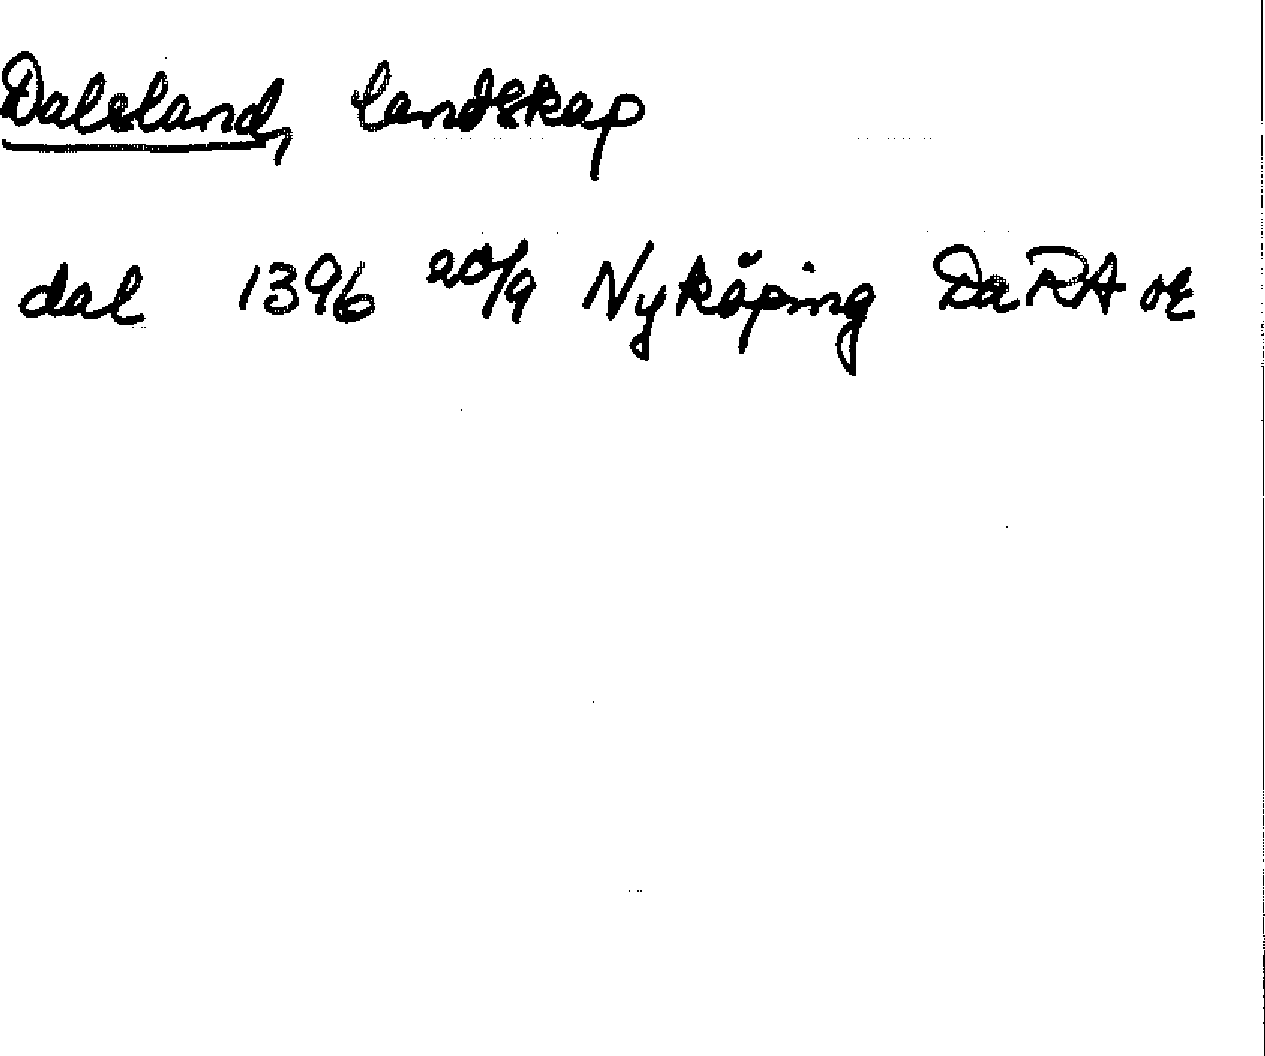 Dalsland, landskap
dal 1396 20/9 Nyköping DaRA or